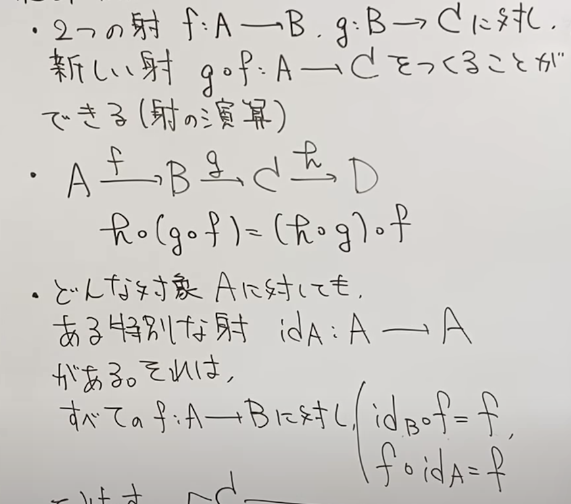 ・2つの射 f:A→B, g:B→Cに対し,
新しい射 g∘f:A→Cをつくることが
できる(射の演算)
・A f→ B g→ C h→ D
h∘(g∘f)=(h∘g)∘f
・どんな対象Aに対しても,
ある特別な射 idA:A→A
がある。それは,
すべてのf:A→Bに対し, idB∘f=f,
f∘idA=f